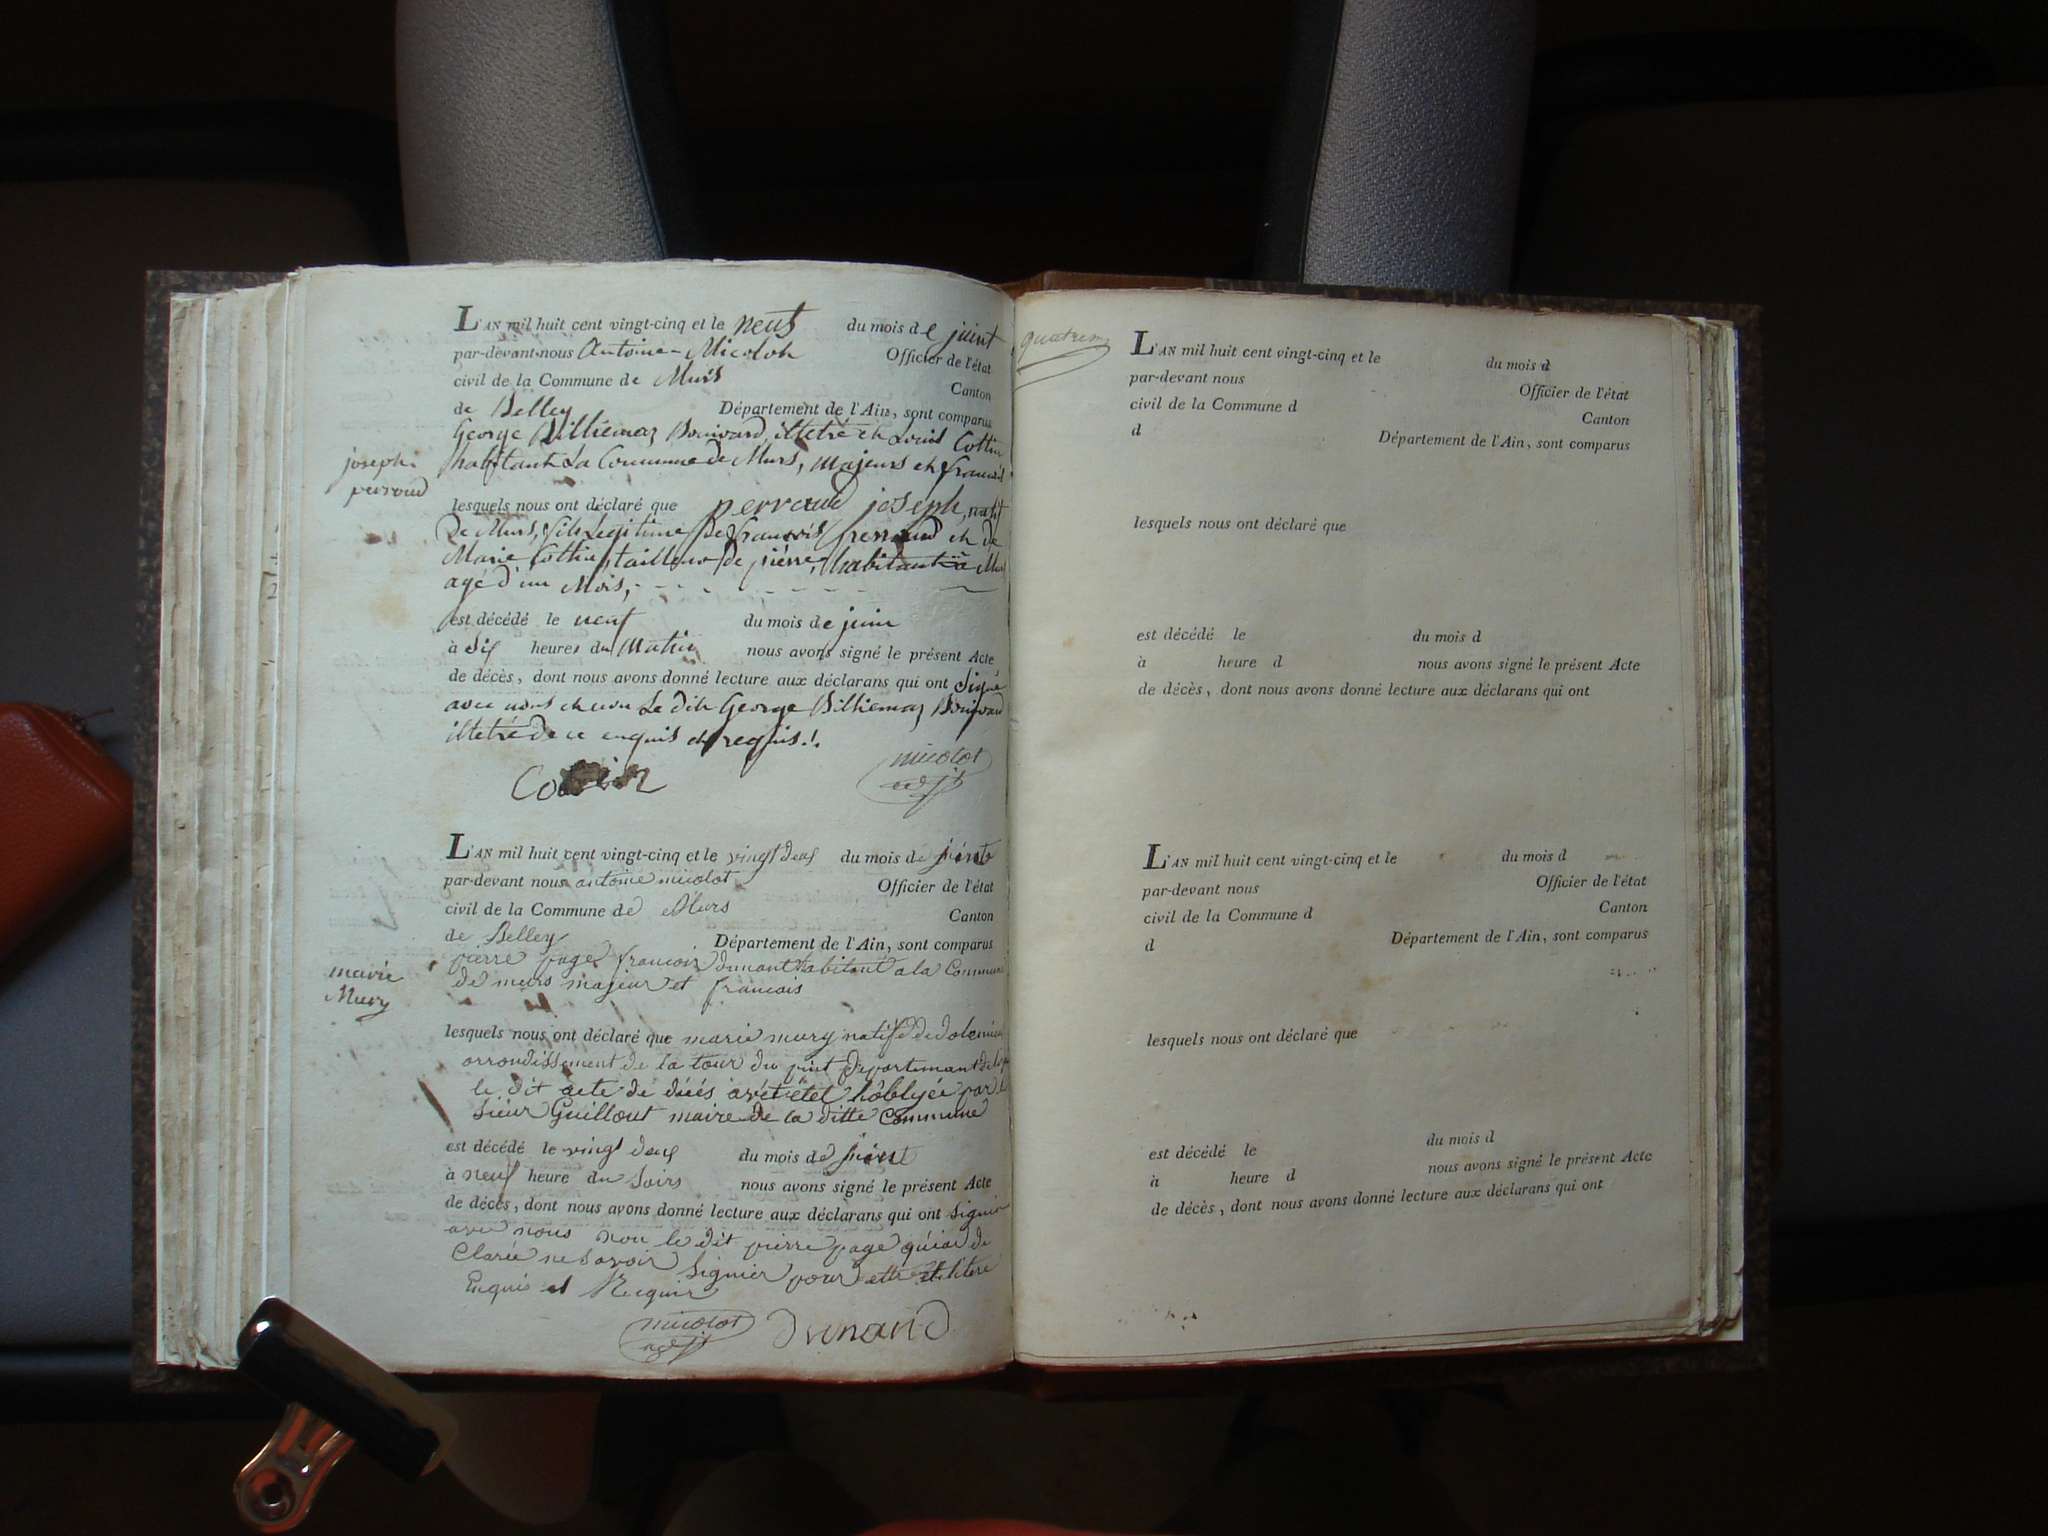 L'AN mil huit cent vingt-cinq et le neuf du mois de juint
par-devant-nous Antoine Micolot Officier de l'état
civil de la Commune de Murs Canton
de Belley Département de l'Ain, sont comparus
George Billiemaz Bonivard, illetré et Louis Cottin
habitant La Commune de Murs, majeurs et francois
joseph
perroud
lesquels nous ont déclaré que perroud joseph, natif
De Murs, fils Legitime De francois perroud et de
Marie Cottin, tailleur de pierre, habitant à
agé d'un Mois,
est décédé le neuf du mois de juin
à Six heures du Matin nous avons signé le présent Acte
de décès, dont nous avons donné lecture aux déclarans qui ont Signé
avec nous et non Le dit George Billiemaz Bonivard
illetré de ce enquis et requis./.
Cottin micolot
adjt
L'AN mil huit cent vingt-cinq et le vingt deux du mois de juint
par-devant nous antoine micolot Officier de l'état
civil de la Commune de Murs Canton
de Belley Département de l'Ain, sont comparus
pierre page francois dunant habitant a la Commune
de murs majeur et francois
marie
Mury
lesquels nous ont déclaré que marie mury natif de
arrondissement de la tour du pint departemant de
le dit acte de décés
Sieur Guillout maire de la ditte Commune
est décédé le vingt deux du mois de juint
à neuf heure du Soirs nous avons signé le présent Acte
de décès, dont nous avons donné lecture aux déclarans qui ont Signier
avec nous non le dit pierre page qui a de
Claree ne Savoir Signier pour ettre
Enquis et Requir
micolot
adjt Dunand
quatrem
L'AN mil huit cent vingt-cinq et le du mois d
par-devant nous Officier de l'état
civil de la Commune d Canton
d Département de l'Ain, sont comparus
lesquels nous ont déclaré que
est décédé le du mois d
à heure d nous avons signé le présent Acte
de décès, dont nous avons donné lecture aux déclarans qui ont
L'AN mil huit cent vingt-cinq et le du mois d
par-devant nous Officier de l'état
civil de la Commune d Canton
d Département de l'Ain, sont comparus
lesquels nous ont déclaré que
est décédé le du mois d
à heure d nous avons signé le présent Acte
de décès, dont nous avons donné lecture aux déclarans qui ont